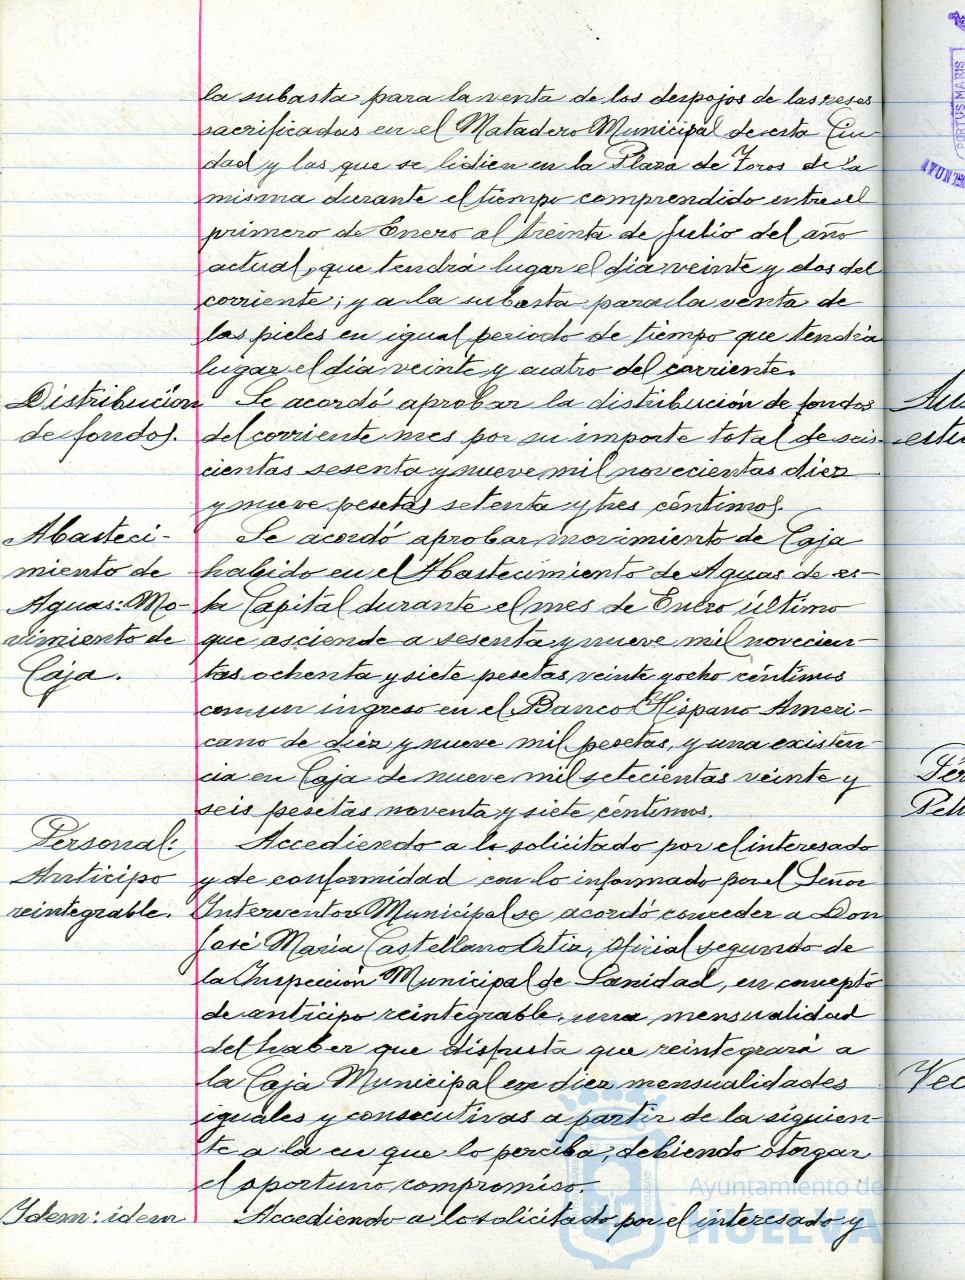 la subasta para la venta de los despojos de las reses
sacrificadas en el Matadero Municipal de esta Ciu-
dad y las que se lidien en la Plaza de Toros de la
misma durante el tiempo comprendido entre el
primero de Enero al treinta de Julio del año
actual, que tendrá lugar el dia veinte y dos del
corriente; y a la subasta para la venta de
las pieles en igual periodo de tiempo que tendrá
lugar el dia veinte y cuatro del corriente.
Distribución
de fondos.
Se acordó aprobar la distribución de fondos
del corriente mes por su importe total de seis-
cientas sesenta y nueve mil novecientas diez
y nueve pesetas setenta y tres céntimos.
Abasteci-
miento de
Aguas: Mo-
vimiento de
Caja.
Se acordó aprobar movimiento de Caja
habido en el Abastecimiento de Aguas de es-
ta Capital durante el mes de Enero último
que asciende a sesenta y nueve mil novecien-
tas ochenta y siete pesetas veinte y ocho céntimos
con un ingreso en el Banco Hispano Ameri-
cano de diez y nueve mil pesetas, y una existen-
cia en Caja de nueve mil setecientas veinte y
seis pesetas noventa y siete céntimos.
Personal:
Anticipo
reintegrable.
Accediendo a lo solicitado por el interesado
y de conformidad con lo informado por el Señor
Interventor Municipal se acordó conceder a Don
José María Castellano Ortiz, Oficial segundo de
la Inspección Municipal de Sanidad, en concepto
de anticipo reintegrable, una mensualidad
del haber que disfruta que reintegrará a
la Caja Municipal en diez mensualidades
iguales y consecutivas a partir de la siguien-
te a la en que lo perciba, debiendo otorgar
el oportuno compromiso.
Idem: idem
Accediendo a lo solicitado por el interesado y
Ayuntamiento de
HUELVA
PORTUS MARIS